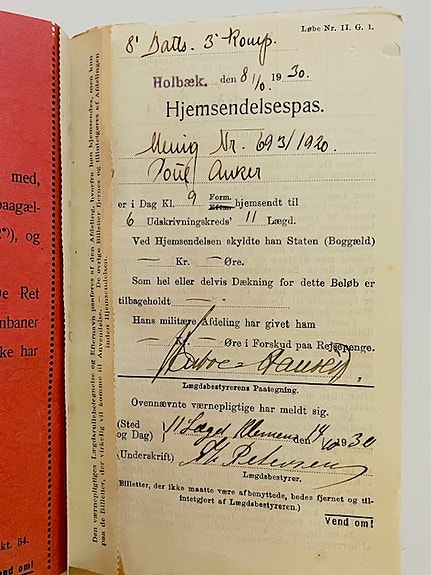 Løbe Nr. 11. G. 1.
8' Batls. 3' Komp.
Holbæk. den 8/10 1930.
Hjemsendelsespas.
Menig Nr. 693/1920.
Poul Anker
er i Dag Kl. 9 Form. Efterm. hjemsendt til
6 Udskrivningskreds' 11 Lægd.
Ved Hjemsendelsen skyldte han Staten (Boggæld)
— Kr. — Øre.
Som hel eller delvis Dækning for dette Beløb er
tilbageholdt — —
Hans militære Afdeling har givet ham
— — Øre i Forskud paa Rejsepenge.
Hansen
Lægdsbestyrerens Paategning.
Ovennævnte værnepligtige har meldt sig.
(Sted og Dag) 11 Lægd Klemens den 14/10 1930
(Underskrift) Petersen
Lægdsbestyrer.
(Billetter, der ikke maatte være afbenyttede, bedes fjernet og tilintetgjort af Lægdsbestyreren.)
Vend om!
Den værnepligtiges Lægdsrullebetegnelse og Efternavn paaføres af den Afdeling, hvorfra han hjemsendes, men kun
paa de Billetter, der virkelig vil komme til Anvendelse. — De øvrige Billetter fjernes og tilintetgøres af Afdelingen
inden Hjemsendelsen.
med,
paagæl-
), og
De Ret
nbaner
ke har
kt. 84.
end om!